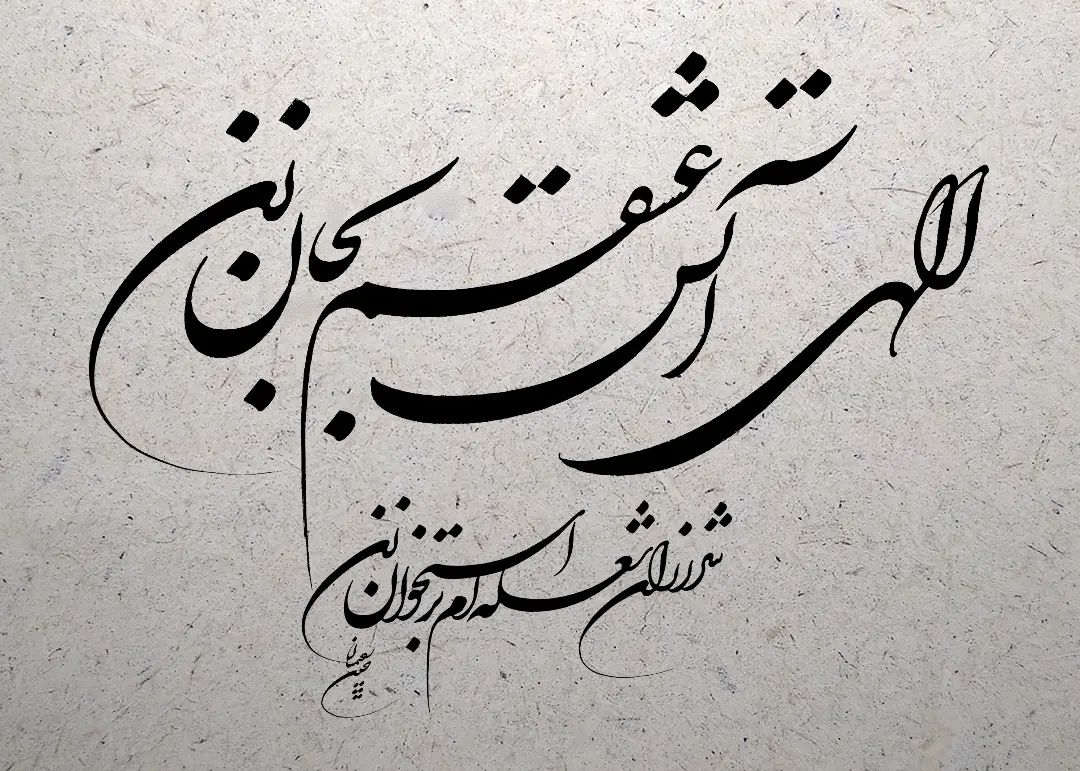 الهی آتش عشقم بجان زن
شرر زان شعله‌ام بر استخوان زن